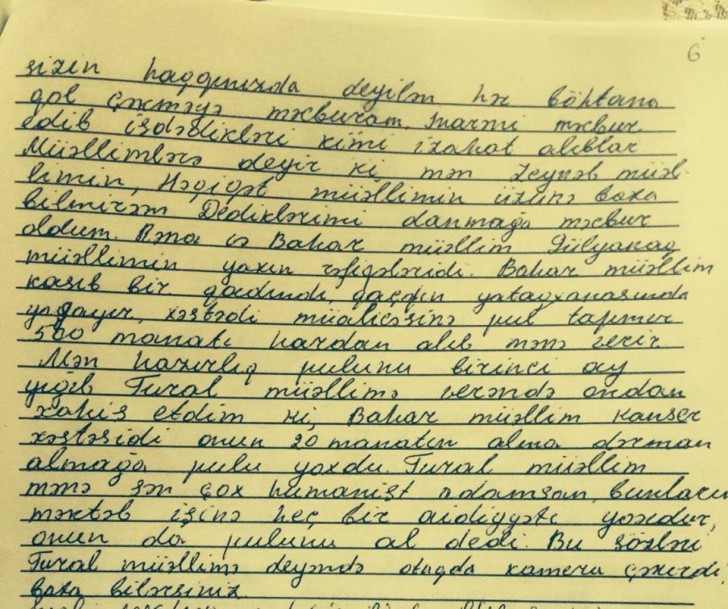 6
sizin haqqınızda deyilən hər böhtana
qol çəkməyə məcburam. məcbur
edib istədikləri kimi izahat alıblar
Müəllimlərə deyir ki mən Zeynəb müəl
limin, Həqiqət müəllimin üzünə baxa
bilmirəm Dediklərimi danmağa məcbur
oldum. Rəna və Bahar müəllim Gülyanaq
müəllimin yaxın rəfiqələridi. Bahar müəllim
kasıb bir qadındı, qaçqın yataqxanasında
yaşayır, xəstədi müalicəsinə pul tapmır
500 manatı hardan alıb mənə verir
Mən hazırlıq pulunu birinci ay
yığıb Tural müəllimə verəndə ondan
xahiş etdim ki, Bahar müəllim kanser
xəstəsidi onun 20 manatın alma dərman
almağa pulu yoxdu. Tural müəllim
mənə sən çox humanist adamsan, bunların
məktəb işinə heç bir aidiyyatı yoxdur,
onun da pulunu al dedi. Bu sözləri
Tural müəllimə deyəndə otaqda kamera çəkirdi
baxa bilərsiniz